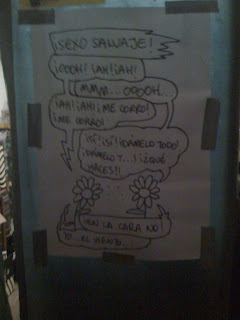 ¡SEXO SALVAJE!
¡OOOH! ¡AH! ¡AH!
MMM... OOOOH.
¡AH! ¡AH! ¡ME CORRO!
¡ME CORRO!
¡SÍ! ¡SÍ! ¡DÁMELO TODO!
¡DÁMELO Y... ! ¿QUÉ
HACES!!
¡EN LA CARA NO!
EL VIENTO...